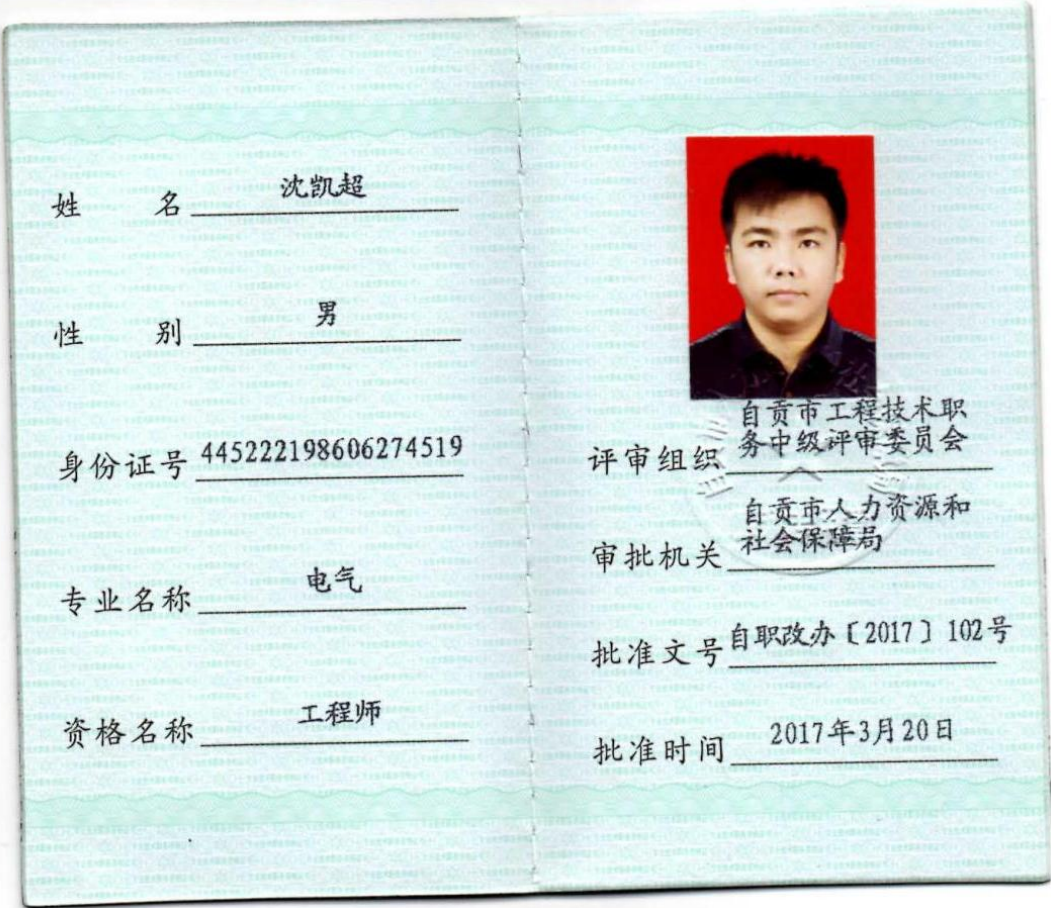 姓 名 沈凯超
性 别 男
身份证号 445222198606274519
专业名称 电气
资格名称 工程师
评审组织 自贡市工程技术职
务中级评审委员会
审批机关 自贡市人力资源和
社会保障局
批准文号 自职改办〔2017〕102号
批准时间 2017年3月20日